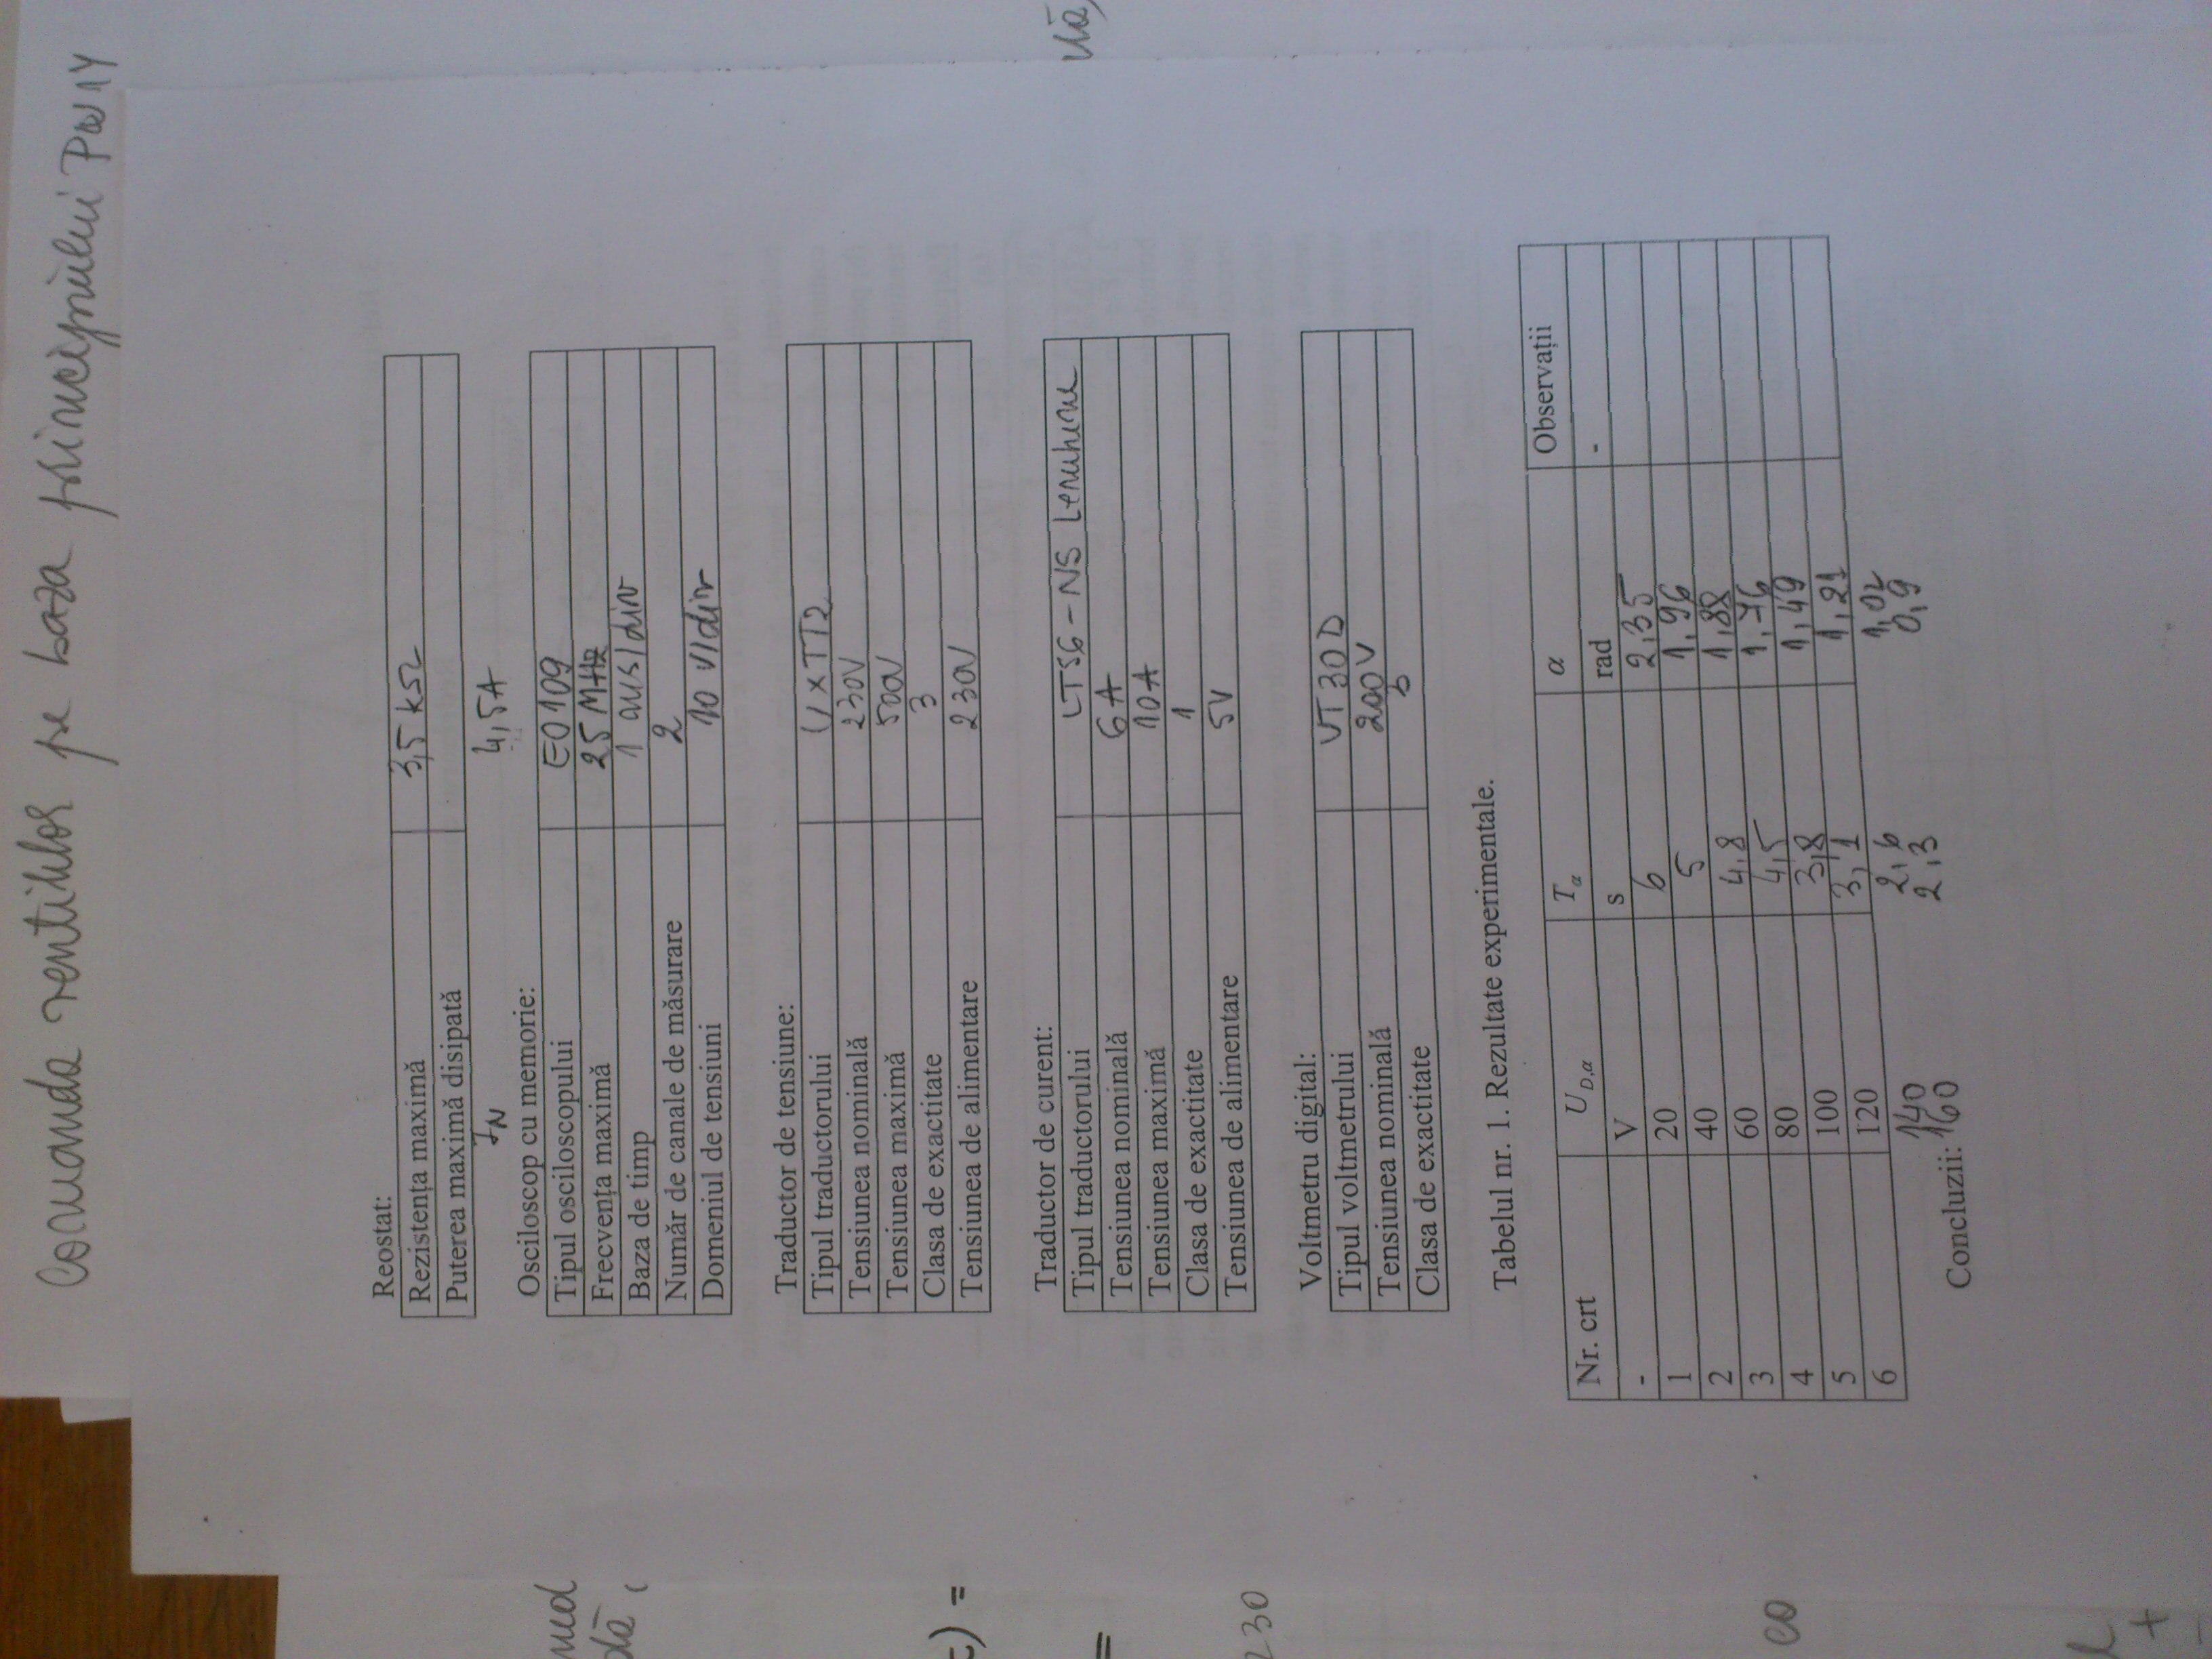 comanda ventilelor pe baza principiului PONY
Reostat:
Rezistența maximă 3,5 kΩ
Puterea maximă disipată
IN 4,5A
Osciloscop cu memorie:
Tipul osciloscopului EO109
Frecvența maximă 25 MHz
Baza de timp 1 ms/div
Număr de canale de măsurare 2
Domeniul de tensiuni 10 V/div
Traductor de tensiune:
Tipul traductorului TT2
Tensiunea nominală 230V
Tensiunea maximă 500V
Clasa de exactitate 3
Tensiunea de alimentare 230V
Traductor de curent:
Tipul traductorului LTS6-NS
Tensiunea nominală 6A
Tensiunea maximă 10A
Clasa de exactitate 1
Tensiunea de alimentare 5V
Voltmetru digital:
Tipul voltmetrului VT30D
Tensiunea nominală 200V
Clasa de exactitate
Tabelul nr. 1. Rezultate experimentale.
Nr. crt U D,α T α α Observații
- V s rad -
1 20 6 2,35
2 40 5 1,96
3 60 4,8 1,88
4 80 4,5 1,76
5 100 3,8 1,49
6 120 3,1 1,21
140 2,6 1,02
160 2,3 0,9
Concluzii:
230